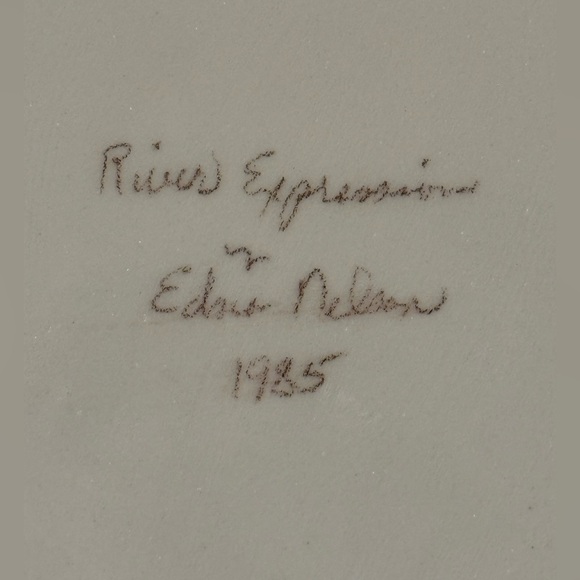 River Expression
by
Edna Nelson
1985